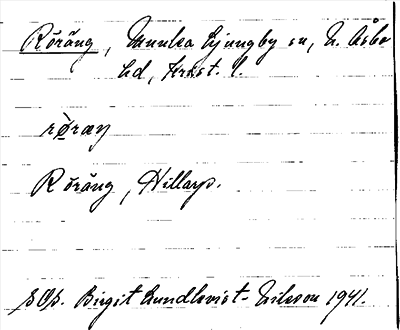 Röräng, Munka Ljungby sn, N. Åsbo
hd, Krist. l.
Röräng, Hillarp.
Birgit Lundkvist-Nilsson 1941.